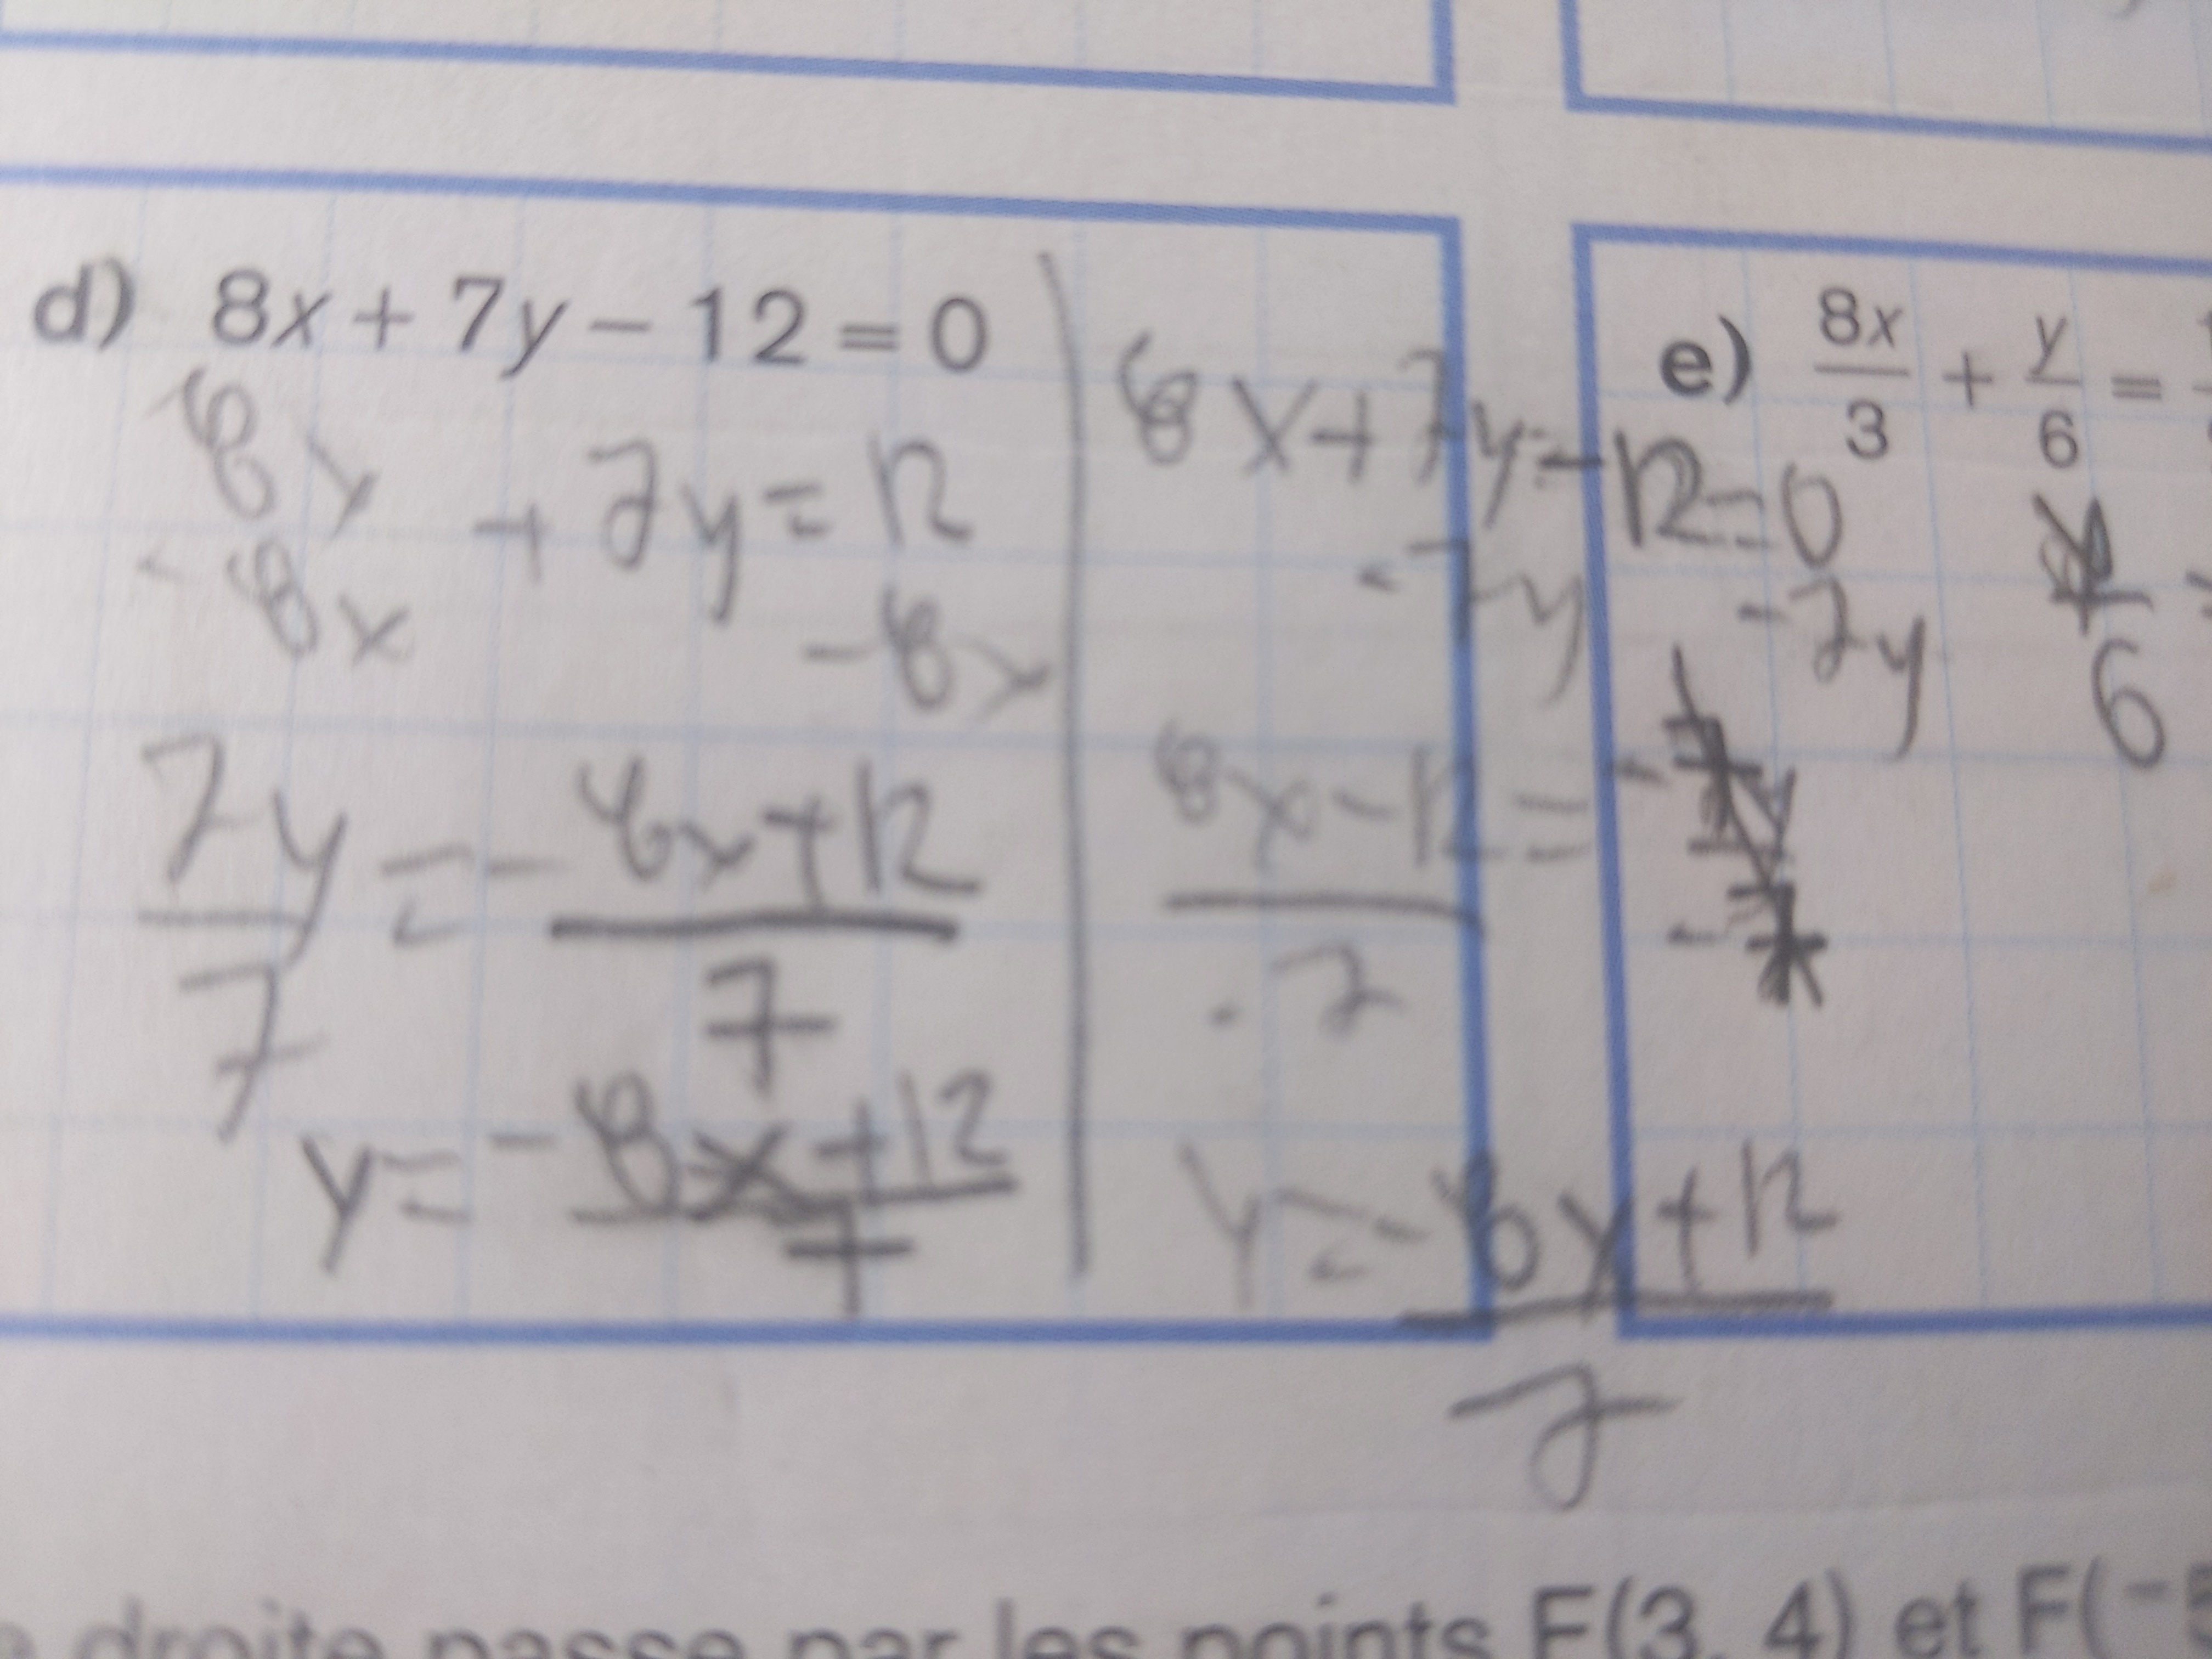 d) 8x + 7y − 12 = 0
8x + 7y = 12
- 8x - 8x
7y = - 8x + 12
7 7
y = - 8x + 12
7
8x + 7y - 12 = 0
- 7y - 7y
8x - 12 = -
- 7
y = - 8x + 12
7
e) 8x/3 + y/6 =
6
droite passe par les points E(3, 4) et F(−5